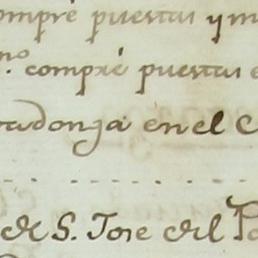 ompré puestas y m
no. compré puestas e
vadonga en el C
de S. Jose del Pa